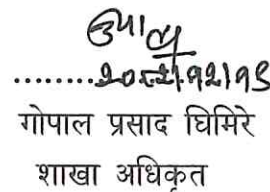 ........२०८२।१२।१८
गोपाल प्रसाद घिमिरे
शाखा अधिकृत